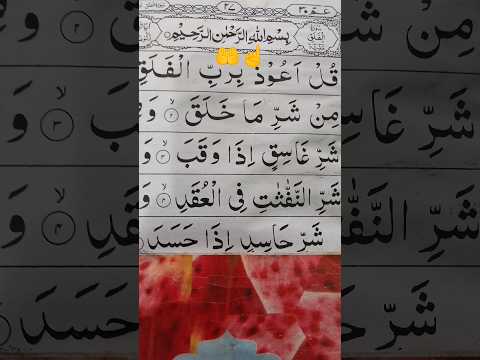 عـم ٣٠
٢٧
بِسْمِ اللّٰهِ الرَّحْمٰنِ الرَّحِيْمِ
قُلْ اَعُوْذُ بِرَبِّ الْفَلَقِ
مِنْ شَرِّ مَا خَلَقَ ٢ وَ
شَرِّ غَاسِقٍ اِذَا وَقَبَ ٣ وَ
شَرِّ النَّفّٰثٰتِ فِى الْعُقَدِ ٤ وَ
شَرِّ حَاسِدٍ اِذَا حَسَدَ